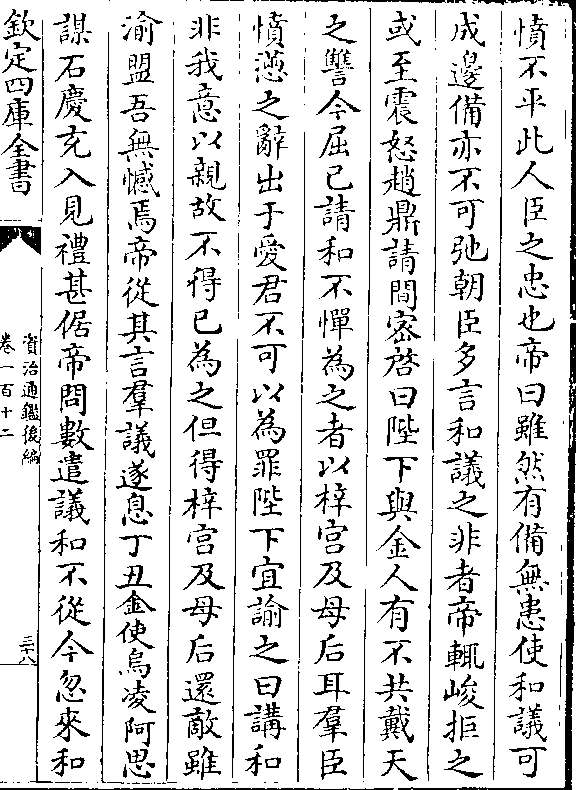 憤不平此人臣之忠也帝曰雖然有備無患使和議可
成邊備亦不可弛朝臣多言和議之非者帝輒峻拒之
或至震怒趙鼎請間密啓曰陛下與金人有不共戴天
之讐今屈己請和不憚為之者以梓宮及母后耳羣臣
憤懣之辭出于愛君不可以為罪陛下宜諭之曰講和
非我意以親故不得已為之但得梓宮及母后還敵雖
渝盟吾無憾焉帝從其言羣議遂息丁丑金使烏凌阿思
謀石慶充入見禮甚倨帝問數遣議和不從今忽來和
欽定四庫全書
資治通鑑後編
卷一百十二
三十八